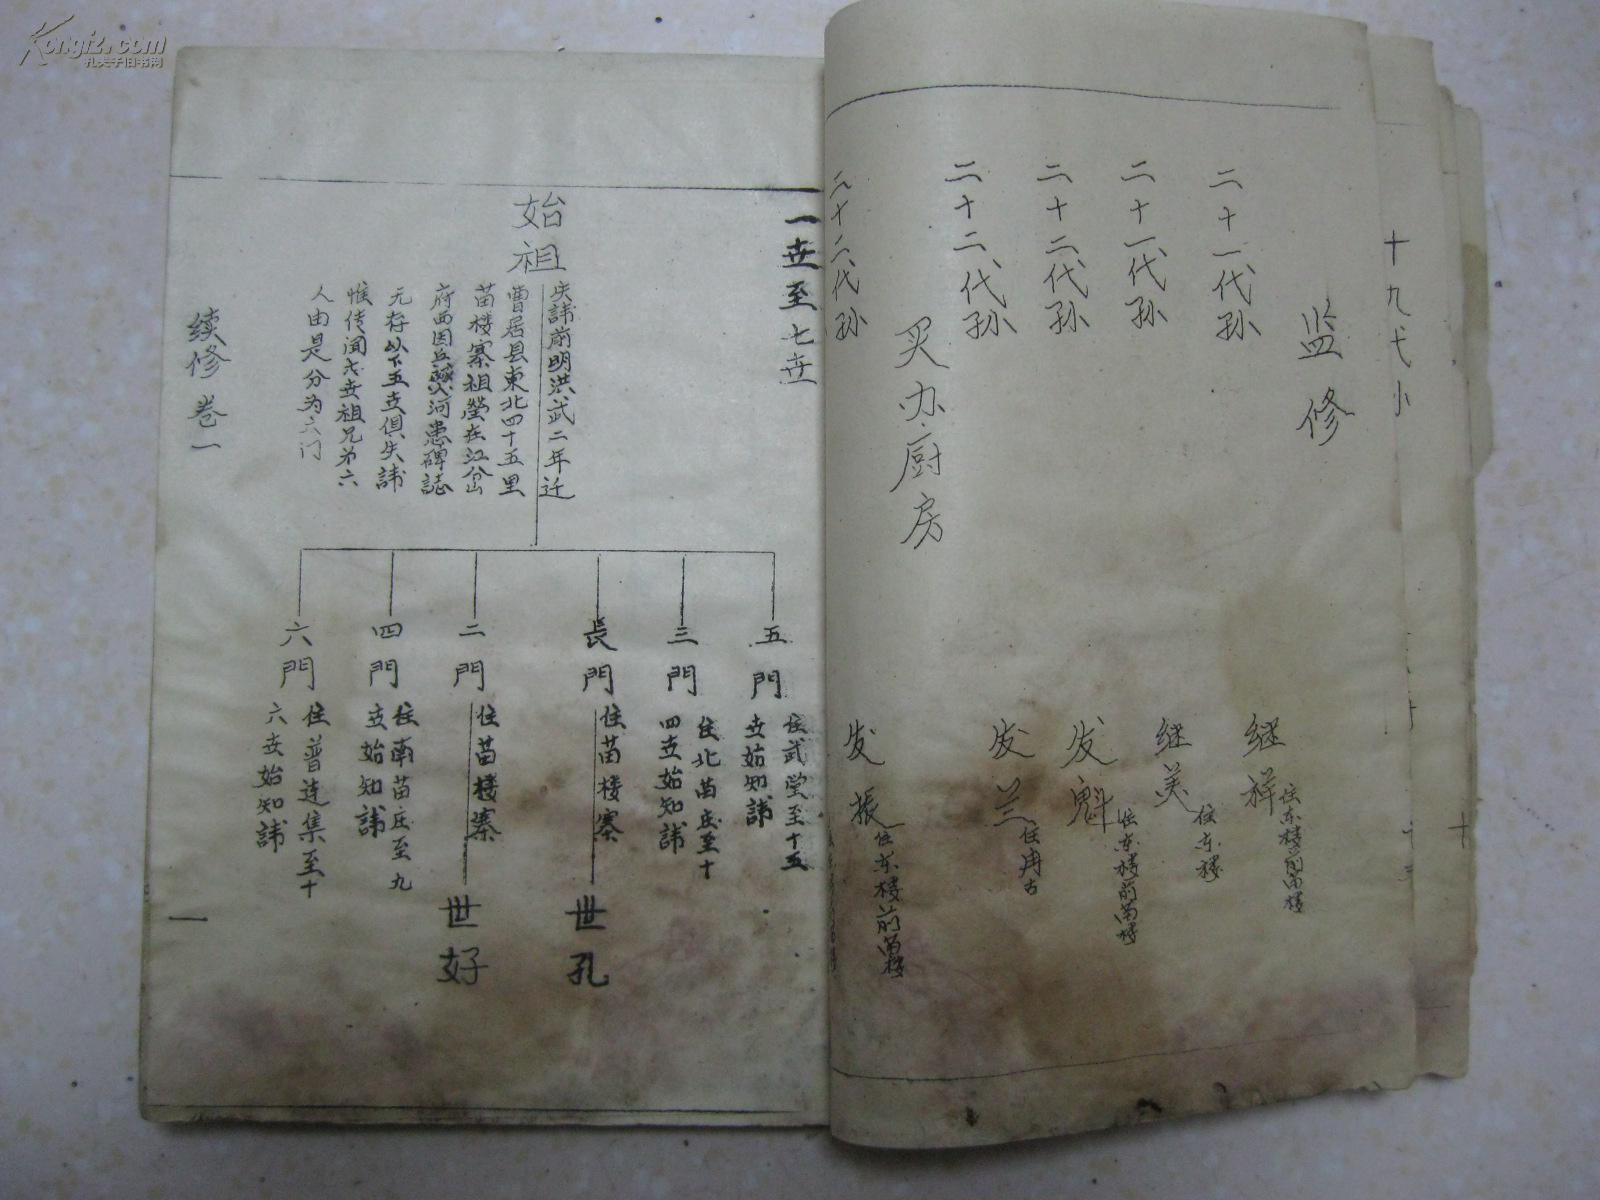 Kongfz.com
孔夫子旧书网
十九代
监修
二十一代孙
继祥
住东楼前苗楼
二十一代孙
继美
住东楼
二十二代孙
发魁
住东楼前苗楼
二十二代孙
发兰
住冉古
买办厨房
二十二代孙
发振
住东楼前苗楼
一世至七世
始祖
失諱前明洪武二年迁
曹居县東北四十五里
苗楼寨祖瑩在江谷出
府西因丘 河患碑誌
元存以下五世俱失諱
惟传闻 世祖兄弟六
人由是分为六门
五門
住武堂至十五
世始知諱
三門
住北苗庄至十
四世始知諱
長門
住苗楼寨
世孔
二門
住苗楼寨
世好
四門
住南苗庄至九
世始知諱
六門
住普連集至十
六世始知諱
续修 卷一
一